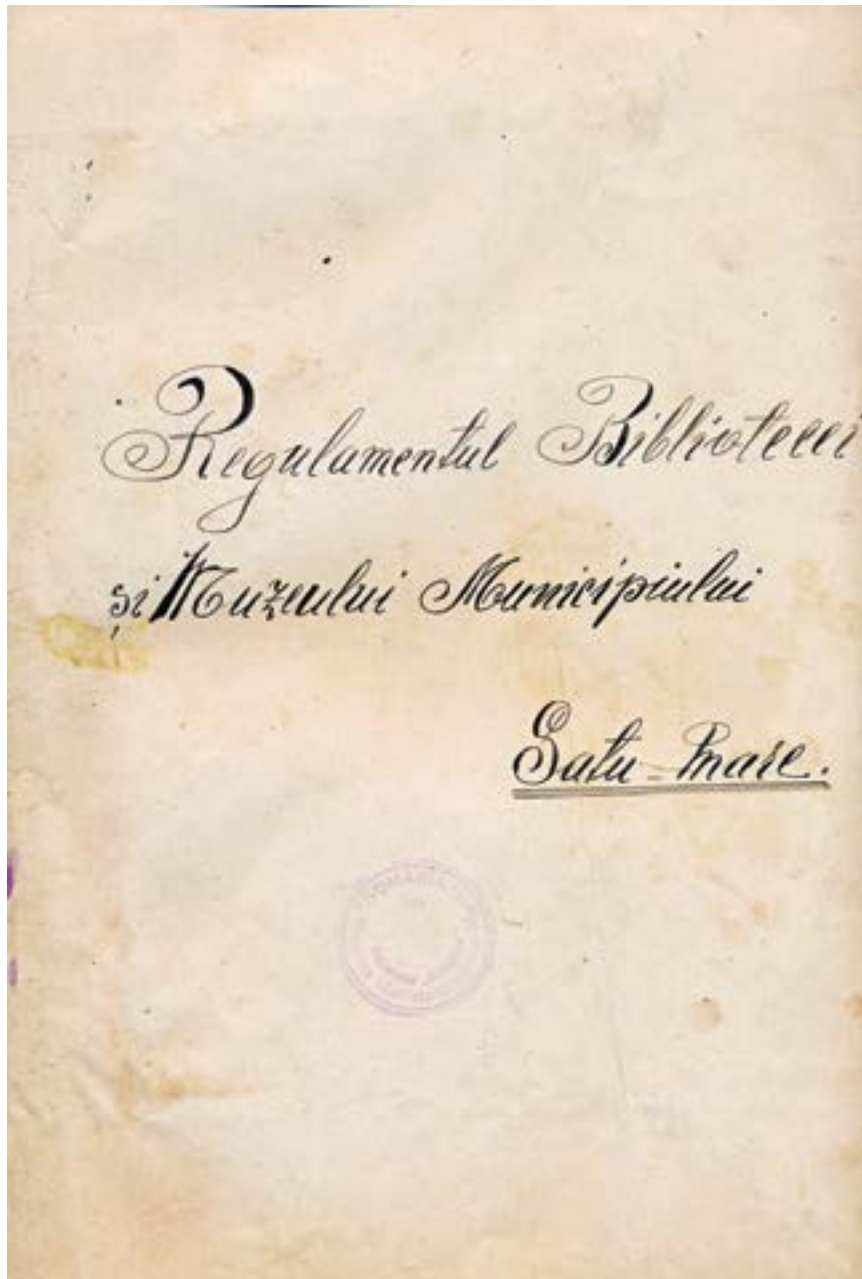 Regulamentul Bibliotecei
și Muzeului Municipiului
Satu-mare.
ROMÂNIA